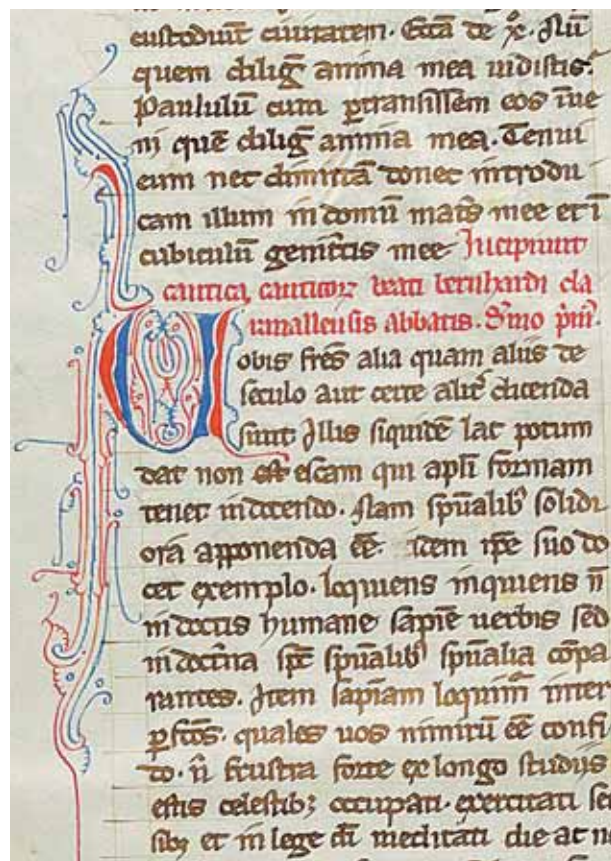 custodiūt ciuitatem. Eccā de xp̄c. Nū
quem diliḡ anima mea uidistis.
Paululū cum ꝑtransissem eos īue
ni quē diliḡ anima mea. Tenui
eum nec dimittā donec introdu
cam illum in domū mat̄s mee et ī
cubiculū genit̄cis mee Incipiunt
cantica canticoꝝ beati bernhardi cla
ra uallensis abbatis. S̄mo p̄m̄.
Uobis fr̄es alia quam aliis de
seculo aut certe alit̄ dicenda
sunt Illis siquidē lac potum
dat non est escam qui apl̄i formam
tenet in docendo. Nam sp̄ualib᾽ solidi
ora apponenda ēē. idem ip̄e suo do
cet exemplo. loquens inquiens n̄
in doctis humane sapīe uerbis sed
in doct̄na sp̄c sp̄ualib᾽ sp̄ualia cōpa
rantes. Item sapīam loquim̄ inter
ꝑfc̄os. quales uos nimirū ēē confi
do. n̄ frustra forte ex longo studiis
estis celestib; occupati. exercitati sē
sib; et in lege dī meditati die ac n